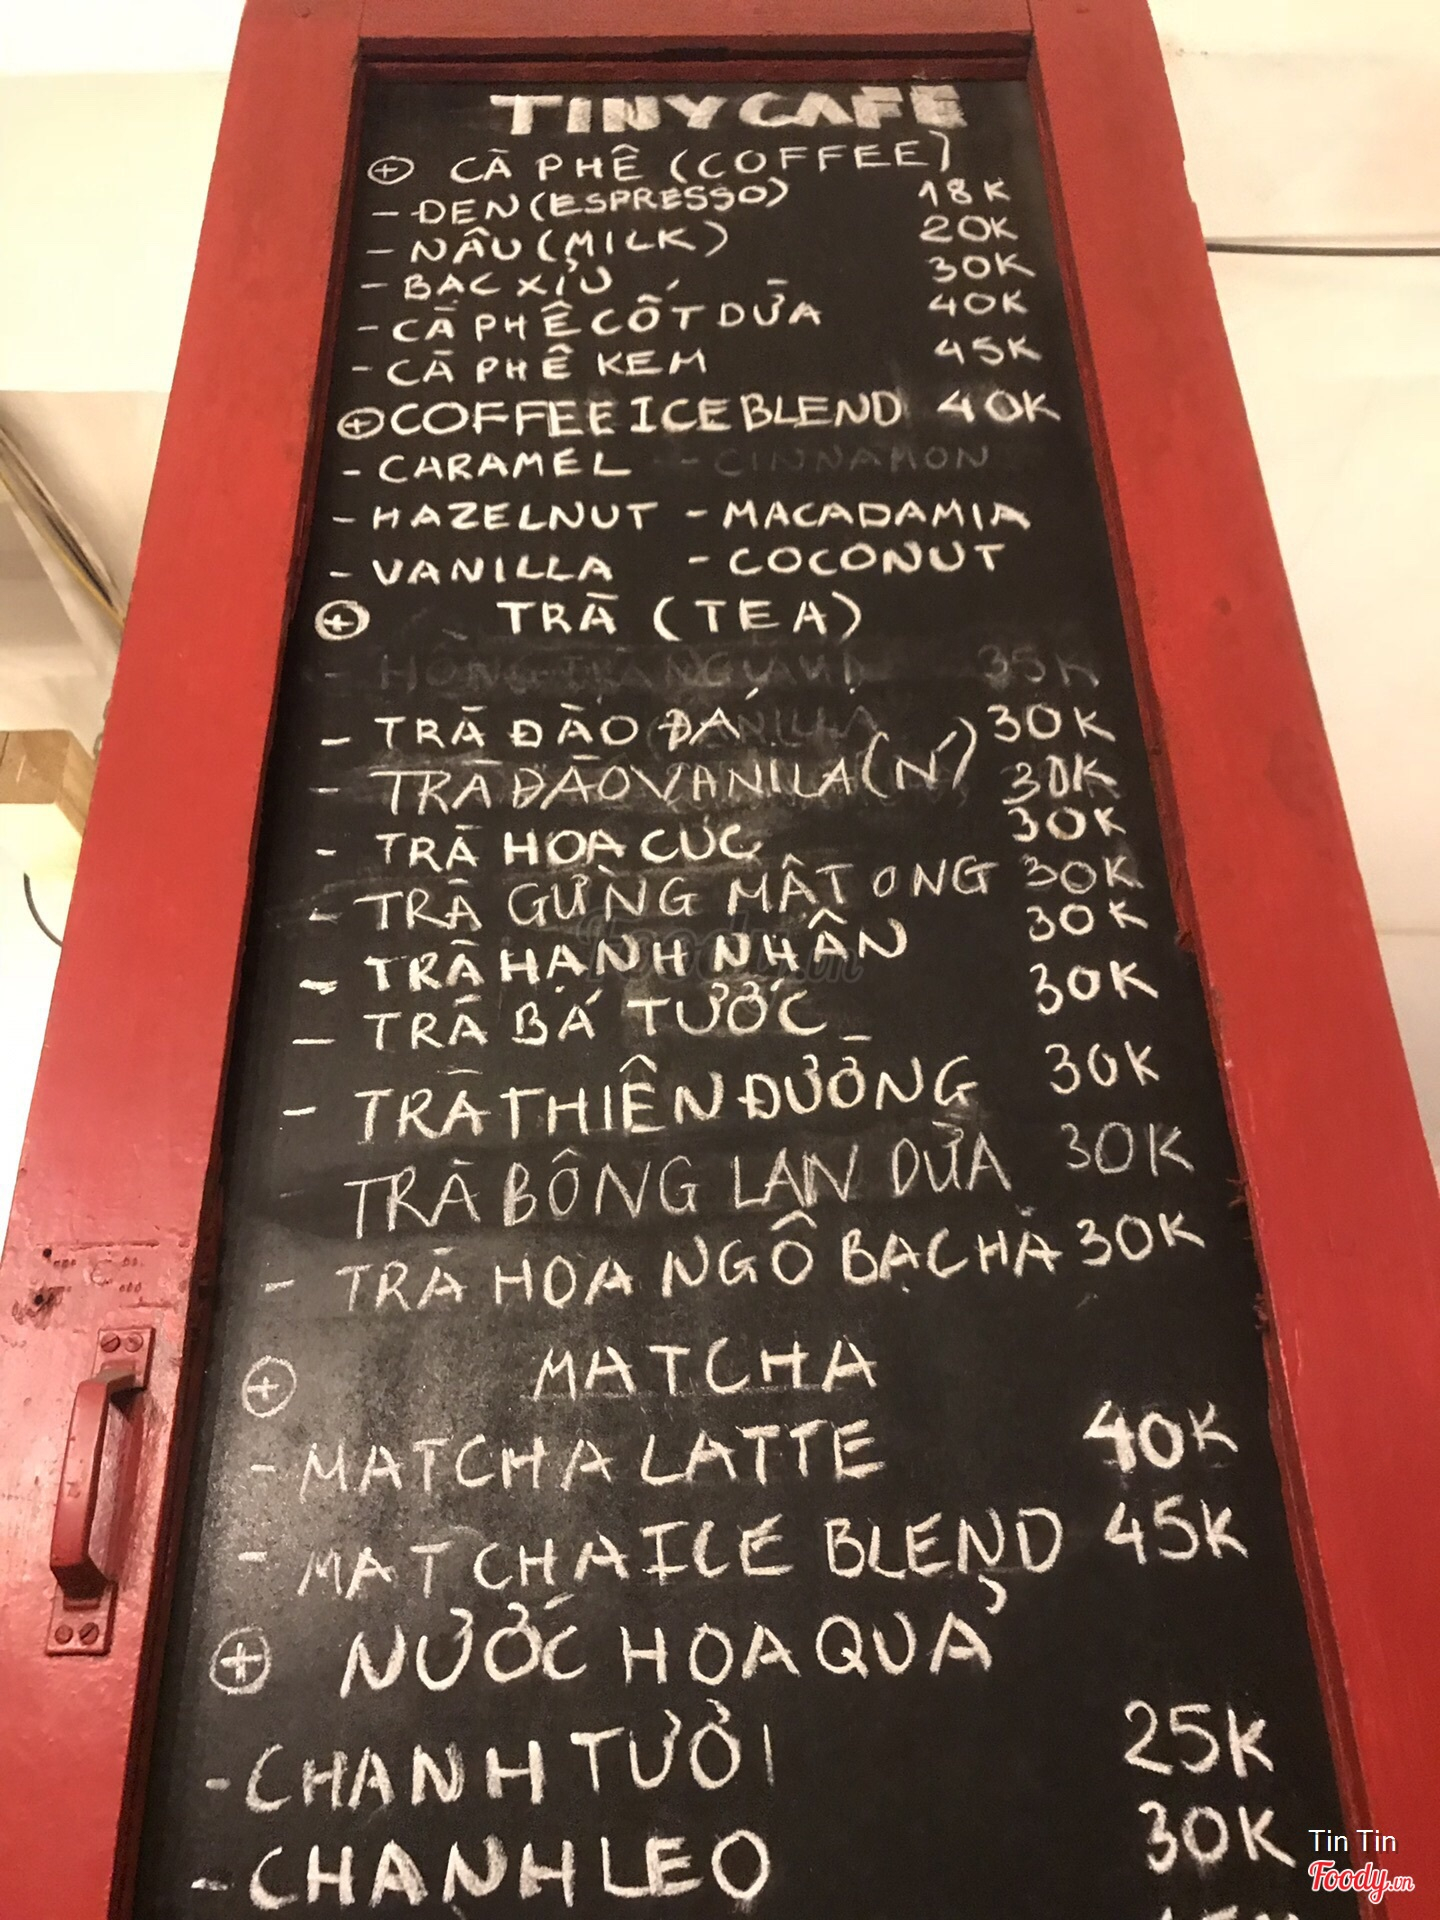 TINY CAFE
⊕ CÀ PHÊ (COFFEE)
- ĐEN (ESPRESSO) 18K
- NÂU (MILK) 20K
- BẠC XỈU 30K
- CÀ PHÊ CỐT DỪA 40K
- CÀ PHÊ KEM 45K
⊕ COFFEE ICE BLEND 40K
- CARAMEL - CINNAMON
- HAZELNUT - MACADAMIA
- VANILLA - COCONUT
⊕ TRÀ (TEA)
- HỒNG TRÀ 35K
- TRÀ ĐÀO ĐÁ 30K
- TRÀ ĐÀO VANILA (N') 30K
- TRÀ HOA CÚC 30K
- TRÀ GỪNG MẬT ONG 30K
- TRÀ HẠNH NHÂN 30K
- TRÀ BÁ TƯỚC 30K
- TRÀ THIÊN ĐƯỜNG 30K
- TRÀ BÔNG LAN DỨA 30K
- TRÀ HOA NGÔ BẠC HÀ 30K
⊕ MATCHA
- MATCHA LATTE 40K
- MATCHA ICE BLEND 45K
⊕ NƯỚC HOA QUẢ
- CHANH TƯƠI 25K
- CHANH LEO 30K
Foody.vn
Tin Tin
Foody.vn